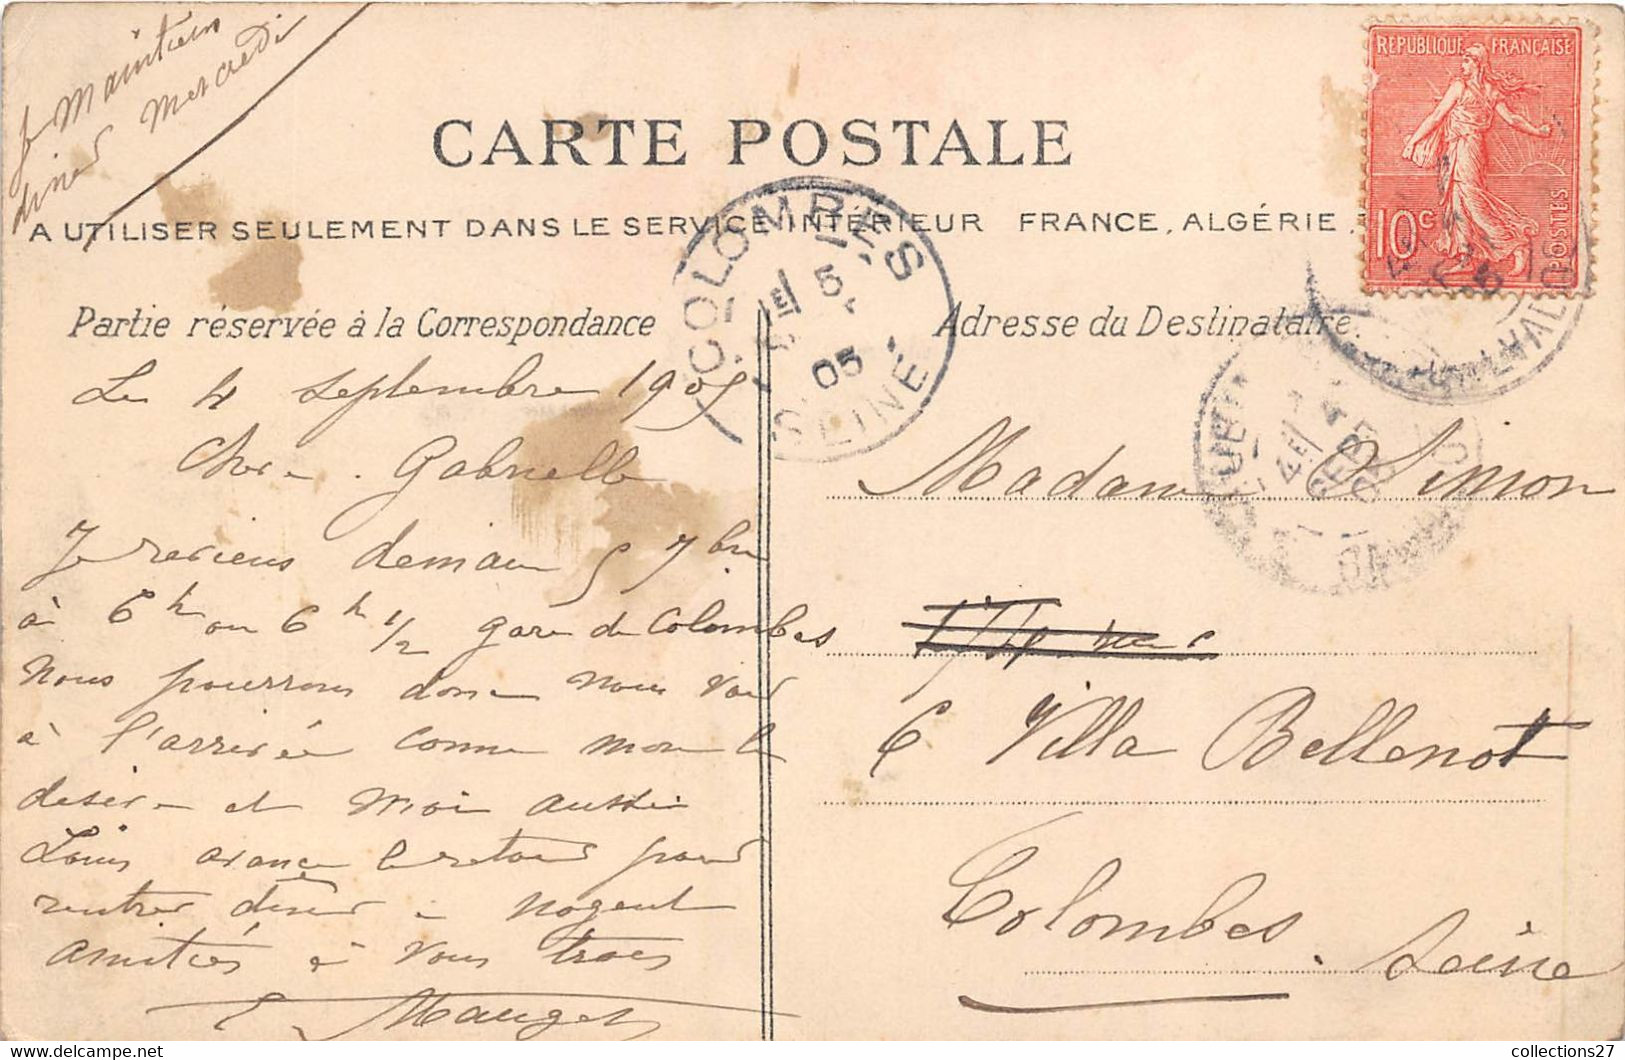 je maintiens
diner mercredi
REPUBLIQUE FRANÇAISE
10c
POSTES
CARTE POSTALE
A UTILISER SEULEMENT DANS LE SERVICE INTÉRIEUR FRANCE, ALGÉRIE,
COLOMBES
5
05
SEINE
Partie réservée à la Correspondance
Le 4 septembre 1905
Chère Gabrielle
Je reviens demain 5 7bre
à 6h ou 6h 1/2 gare de Colombes
nous pourrons donc nous voir
à l'arrivée comme mon
désire et moi aussi
Louis avance le retour pour
rentrer dîner à Nogent
amitiés à vous trois
E. Mauget
Adresse du Destinataire.
Madame Simon
6 Villa Bellenot
Colombes.
Seine
collections27